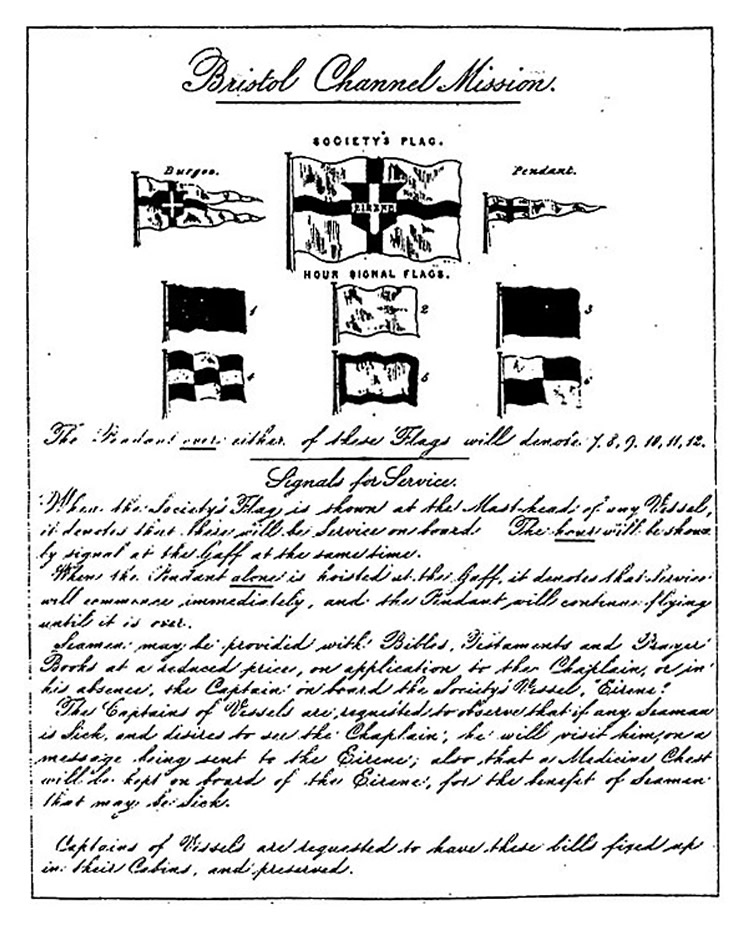 Bristol Channel Mission.
SOCIETY'S FLAG.
Burgee. Pendant.
EIRENE
HOUR SIGNAL FLAGS.
1 2 3
4 5 6
The Pendant over either of these Flags will denote 7, 8, 9, 10, 11, 12.
Signals for Service.
When the Society's Flag is shown at the Mast-head of any Vessel,
it denotes that there will be Service on board. The hour will be shown
by signal at the Gaff at the same time.
When the Pendant alone is hoisted at the Gaff, it denotes that Service
will commence immediately, and the Pendant will continue flying
until it is over.
Seamen may be provided with Bibles, Testaments and Prayer
Books at a reduced price, on application to the Chaplain, or in
his absence, the Captain on board the Society's Vessel, Eirene.
The Captains of Vessels are requested to observe that if any Seaman
is Sick, and desires to see the Chaplain, he will visit him, on a
message being sent to the Eirene; also that a Medicine Chest
will be kept on board of the Eirene, for the benefit of Seamen
that may be Sick.
Captains of Vessels are requested to have these bills fixed up
in their Cabins, and preserved.